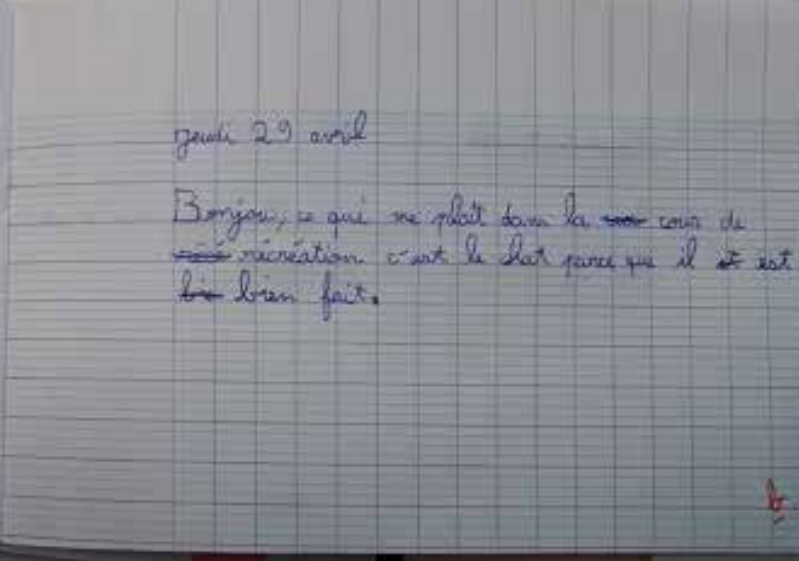 jeudi 29 avril
Bonjour, ce qui me plaît dans la cour de
récréation c'est le chat parce que il est
bien fait.
b